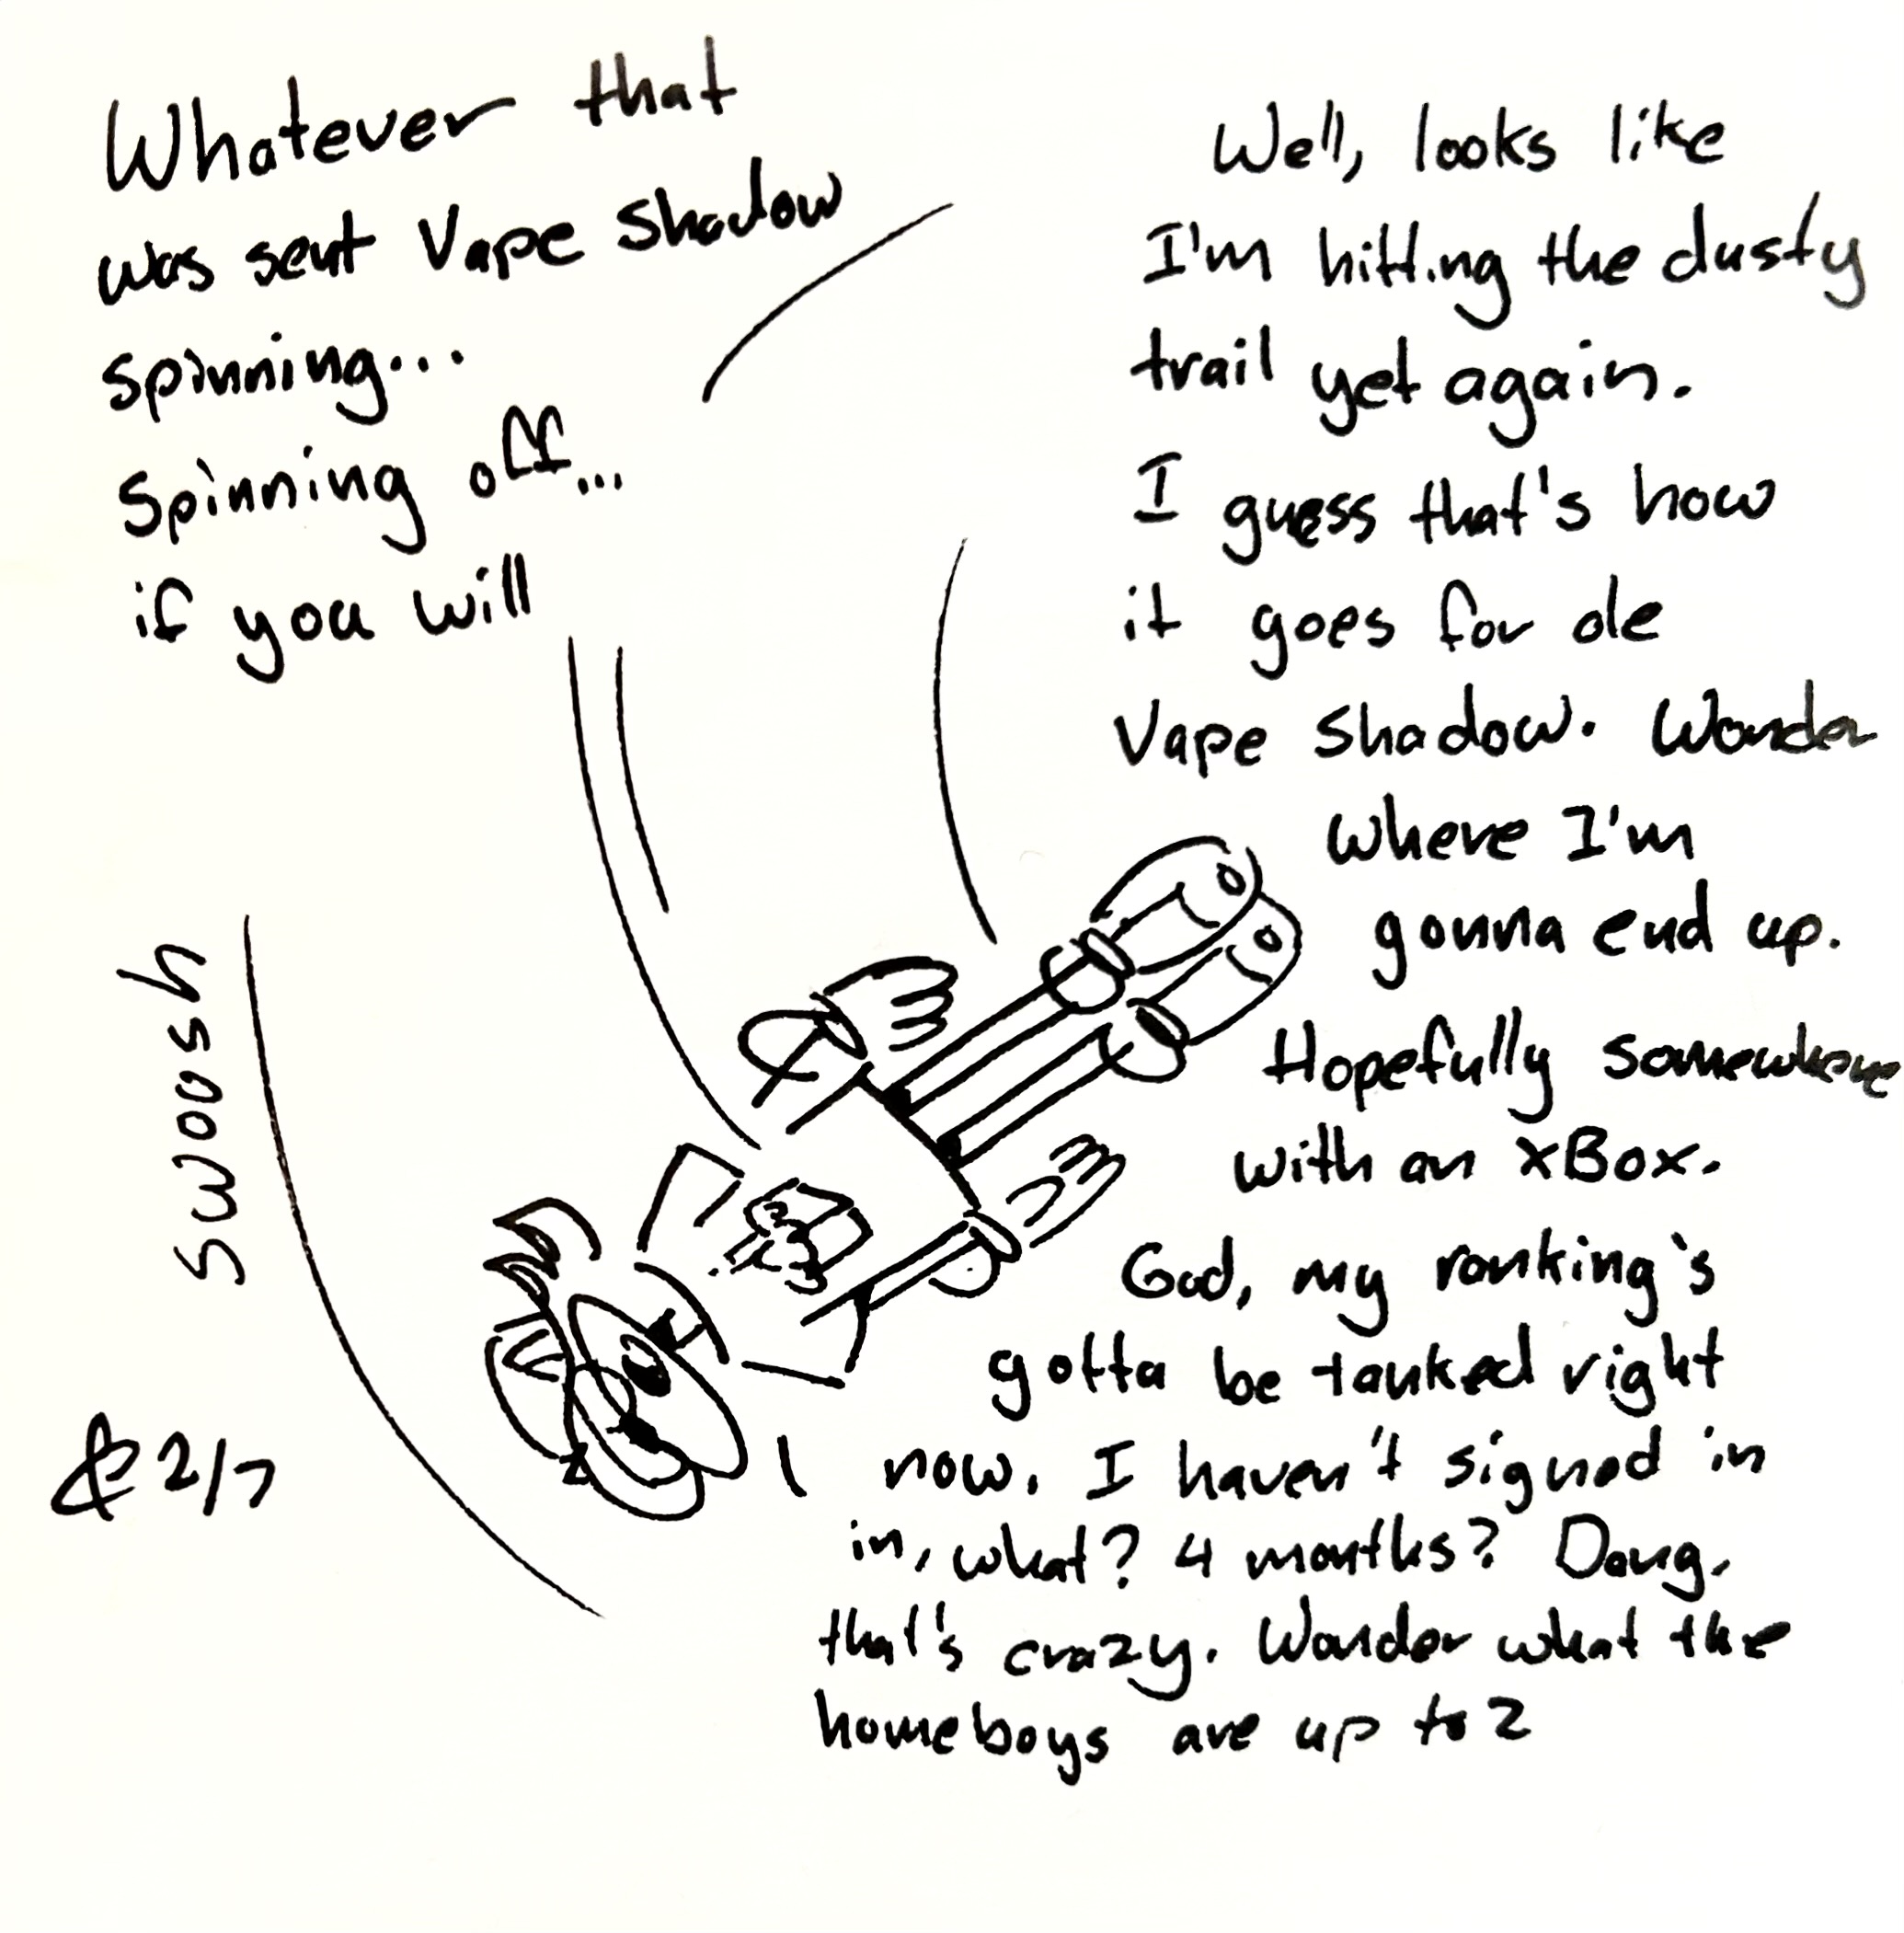 Whatever that
was sent Vape Shadow
spinning...
Spinning off...
if you will
Well, looks like
I'm hitting the dusty
trail yet again.
I guess that's how
it goes for ole
Vape Shadow. Wonder
where I'm
gonna end up.
Hopefully somewhere
with an xBox.
God, my ranking's
gotta be tanked right
now. I haven't signed in
in, what? 4 months? Dang,
that's crazy. Wonder what the
homeboys are up to?
swoosh
2/7